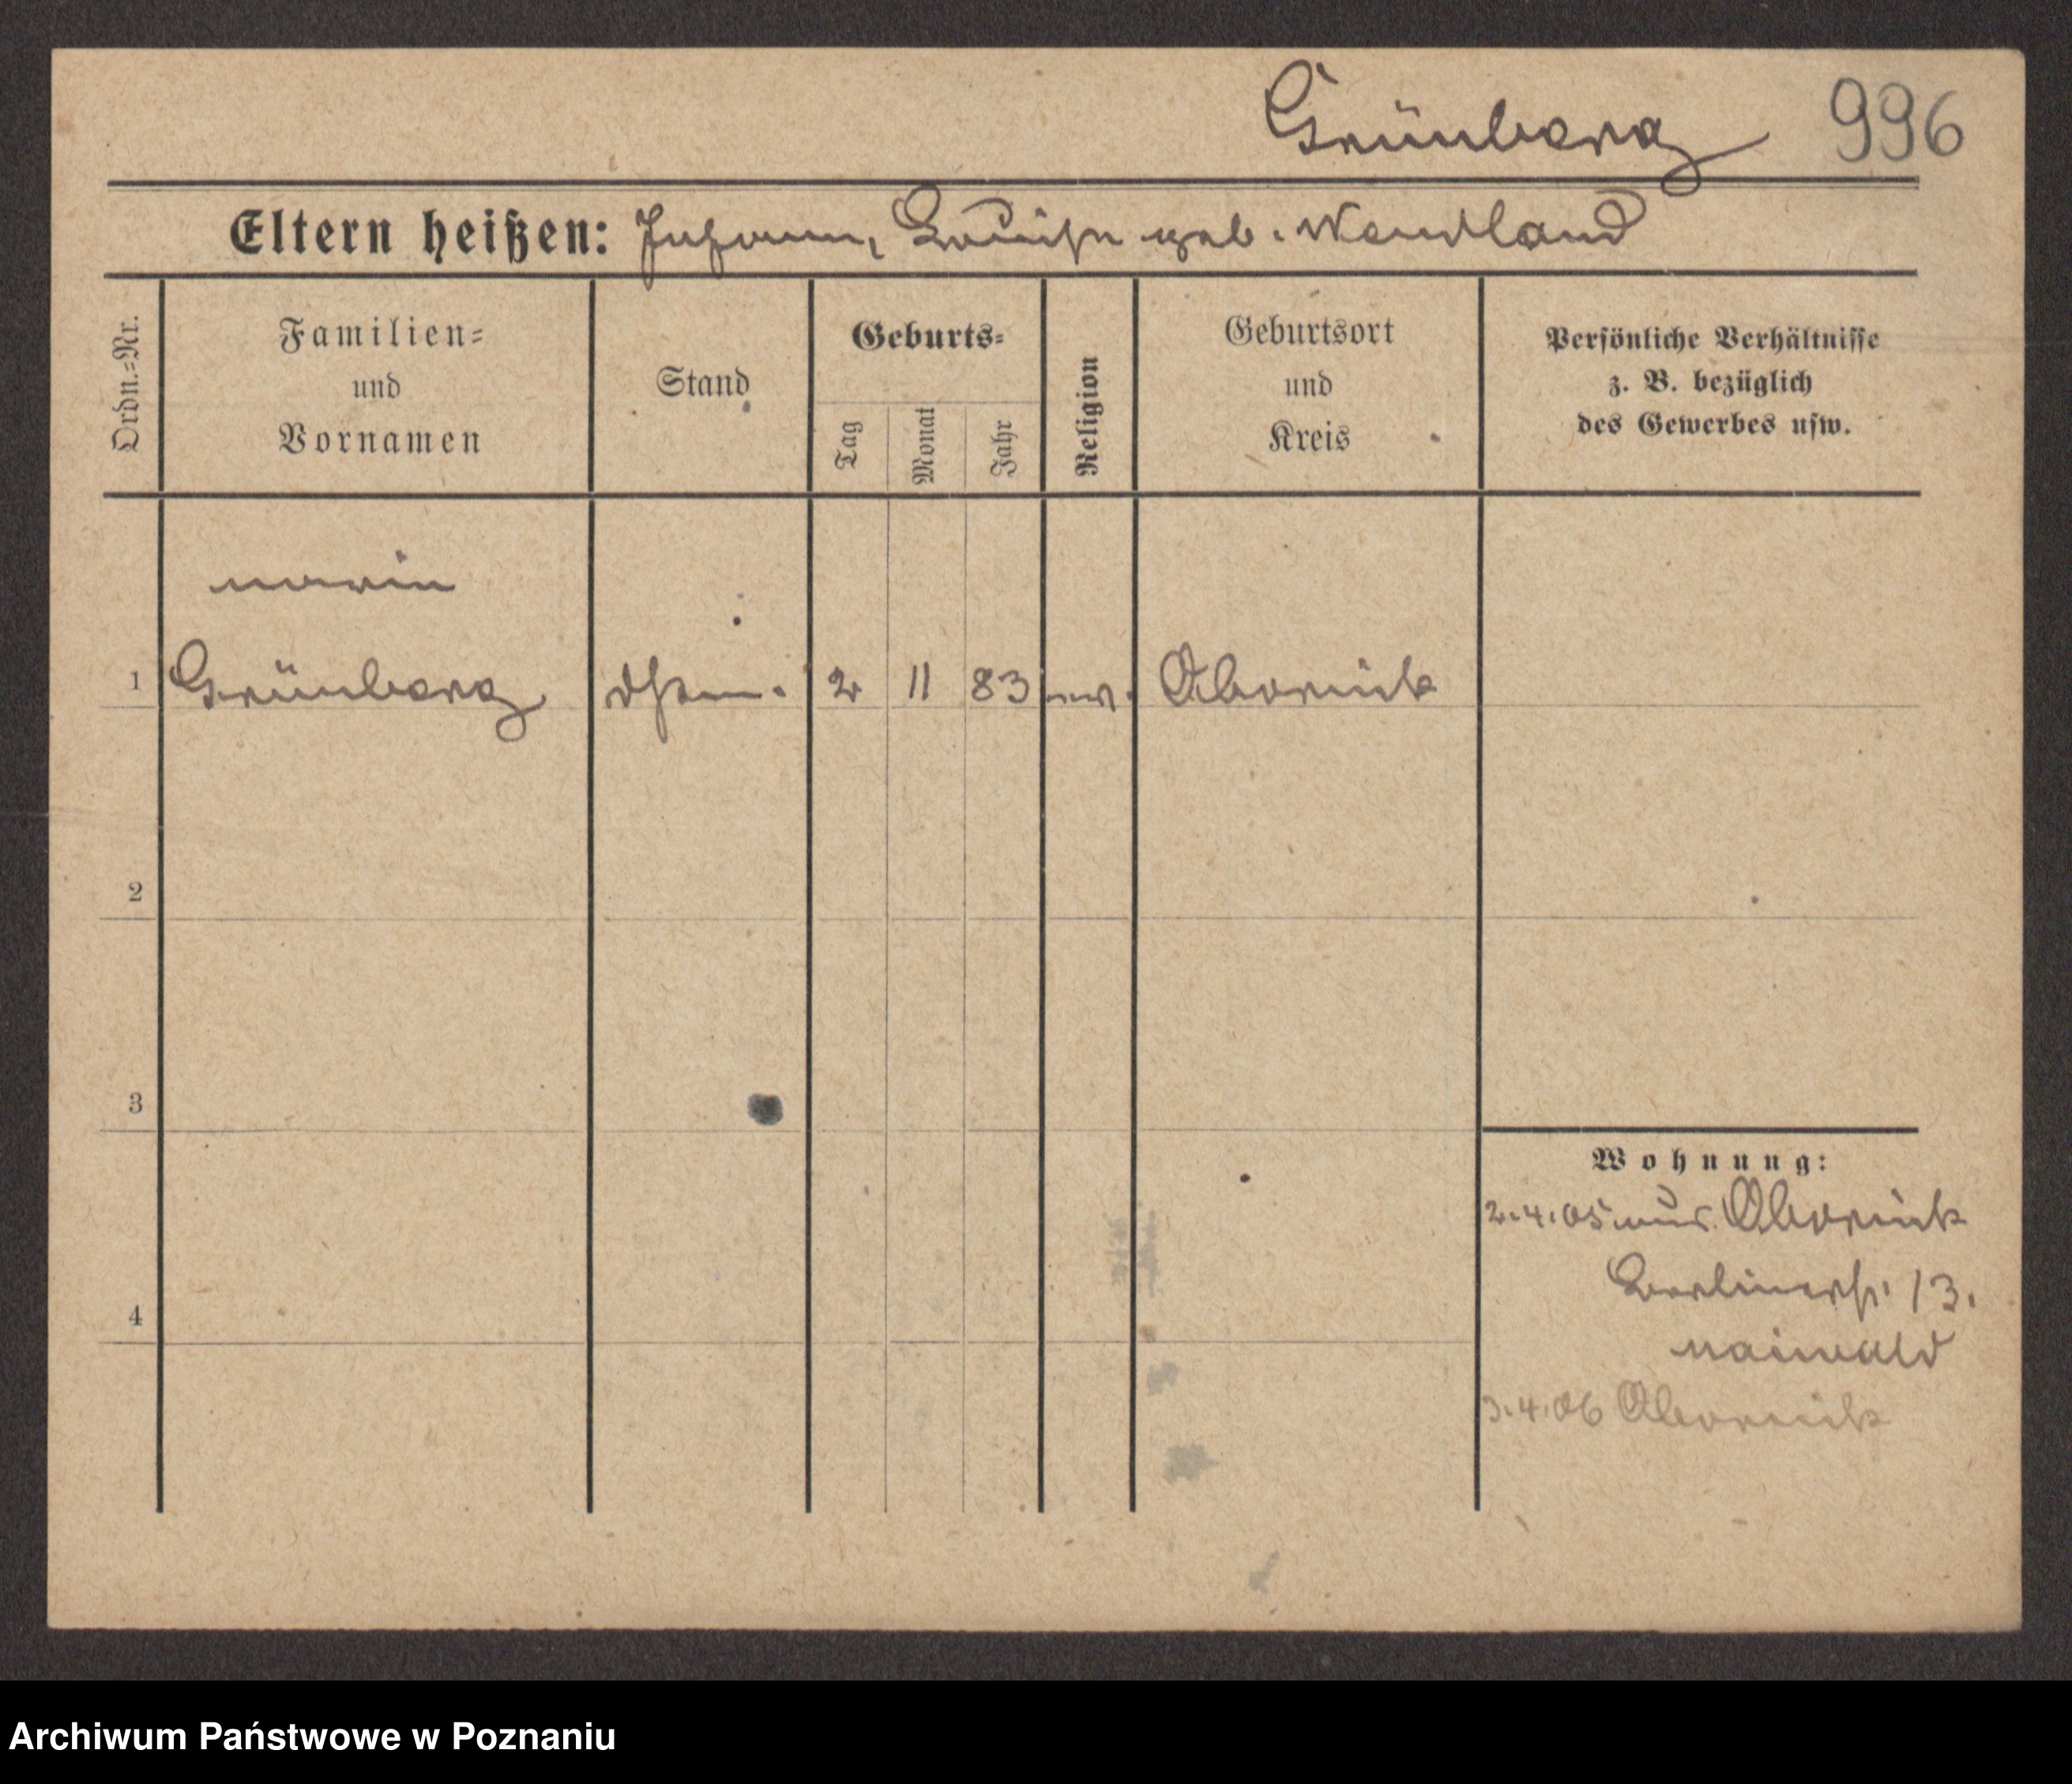 Grünberg 996
Eltern heißen: Johann, Louise geb. Wendland
Ordn.-Nr.
Familien-
und
Vornamen
Stand
Geburts-
Tag
Monat
Jahr
Religion
Geburtsort
und
Kreis
Persönliche Verhältnisse
z. B. bezüglich
des Gewerbes usw.
Marie
1 Grünberg 2 11 83 ev. Obornik
2
3
4
Wohnung:
2.4.05 aus Obornik
Berlinerstr. 13.
Maiwald
3.4.06 Obornik
Archiwum Państwowe w Poznaniu